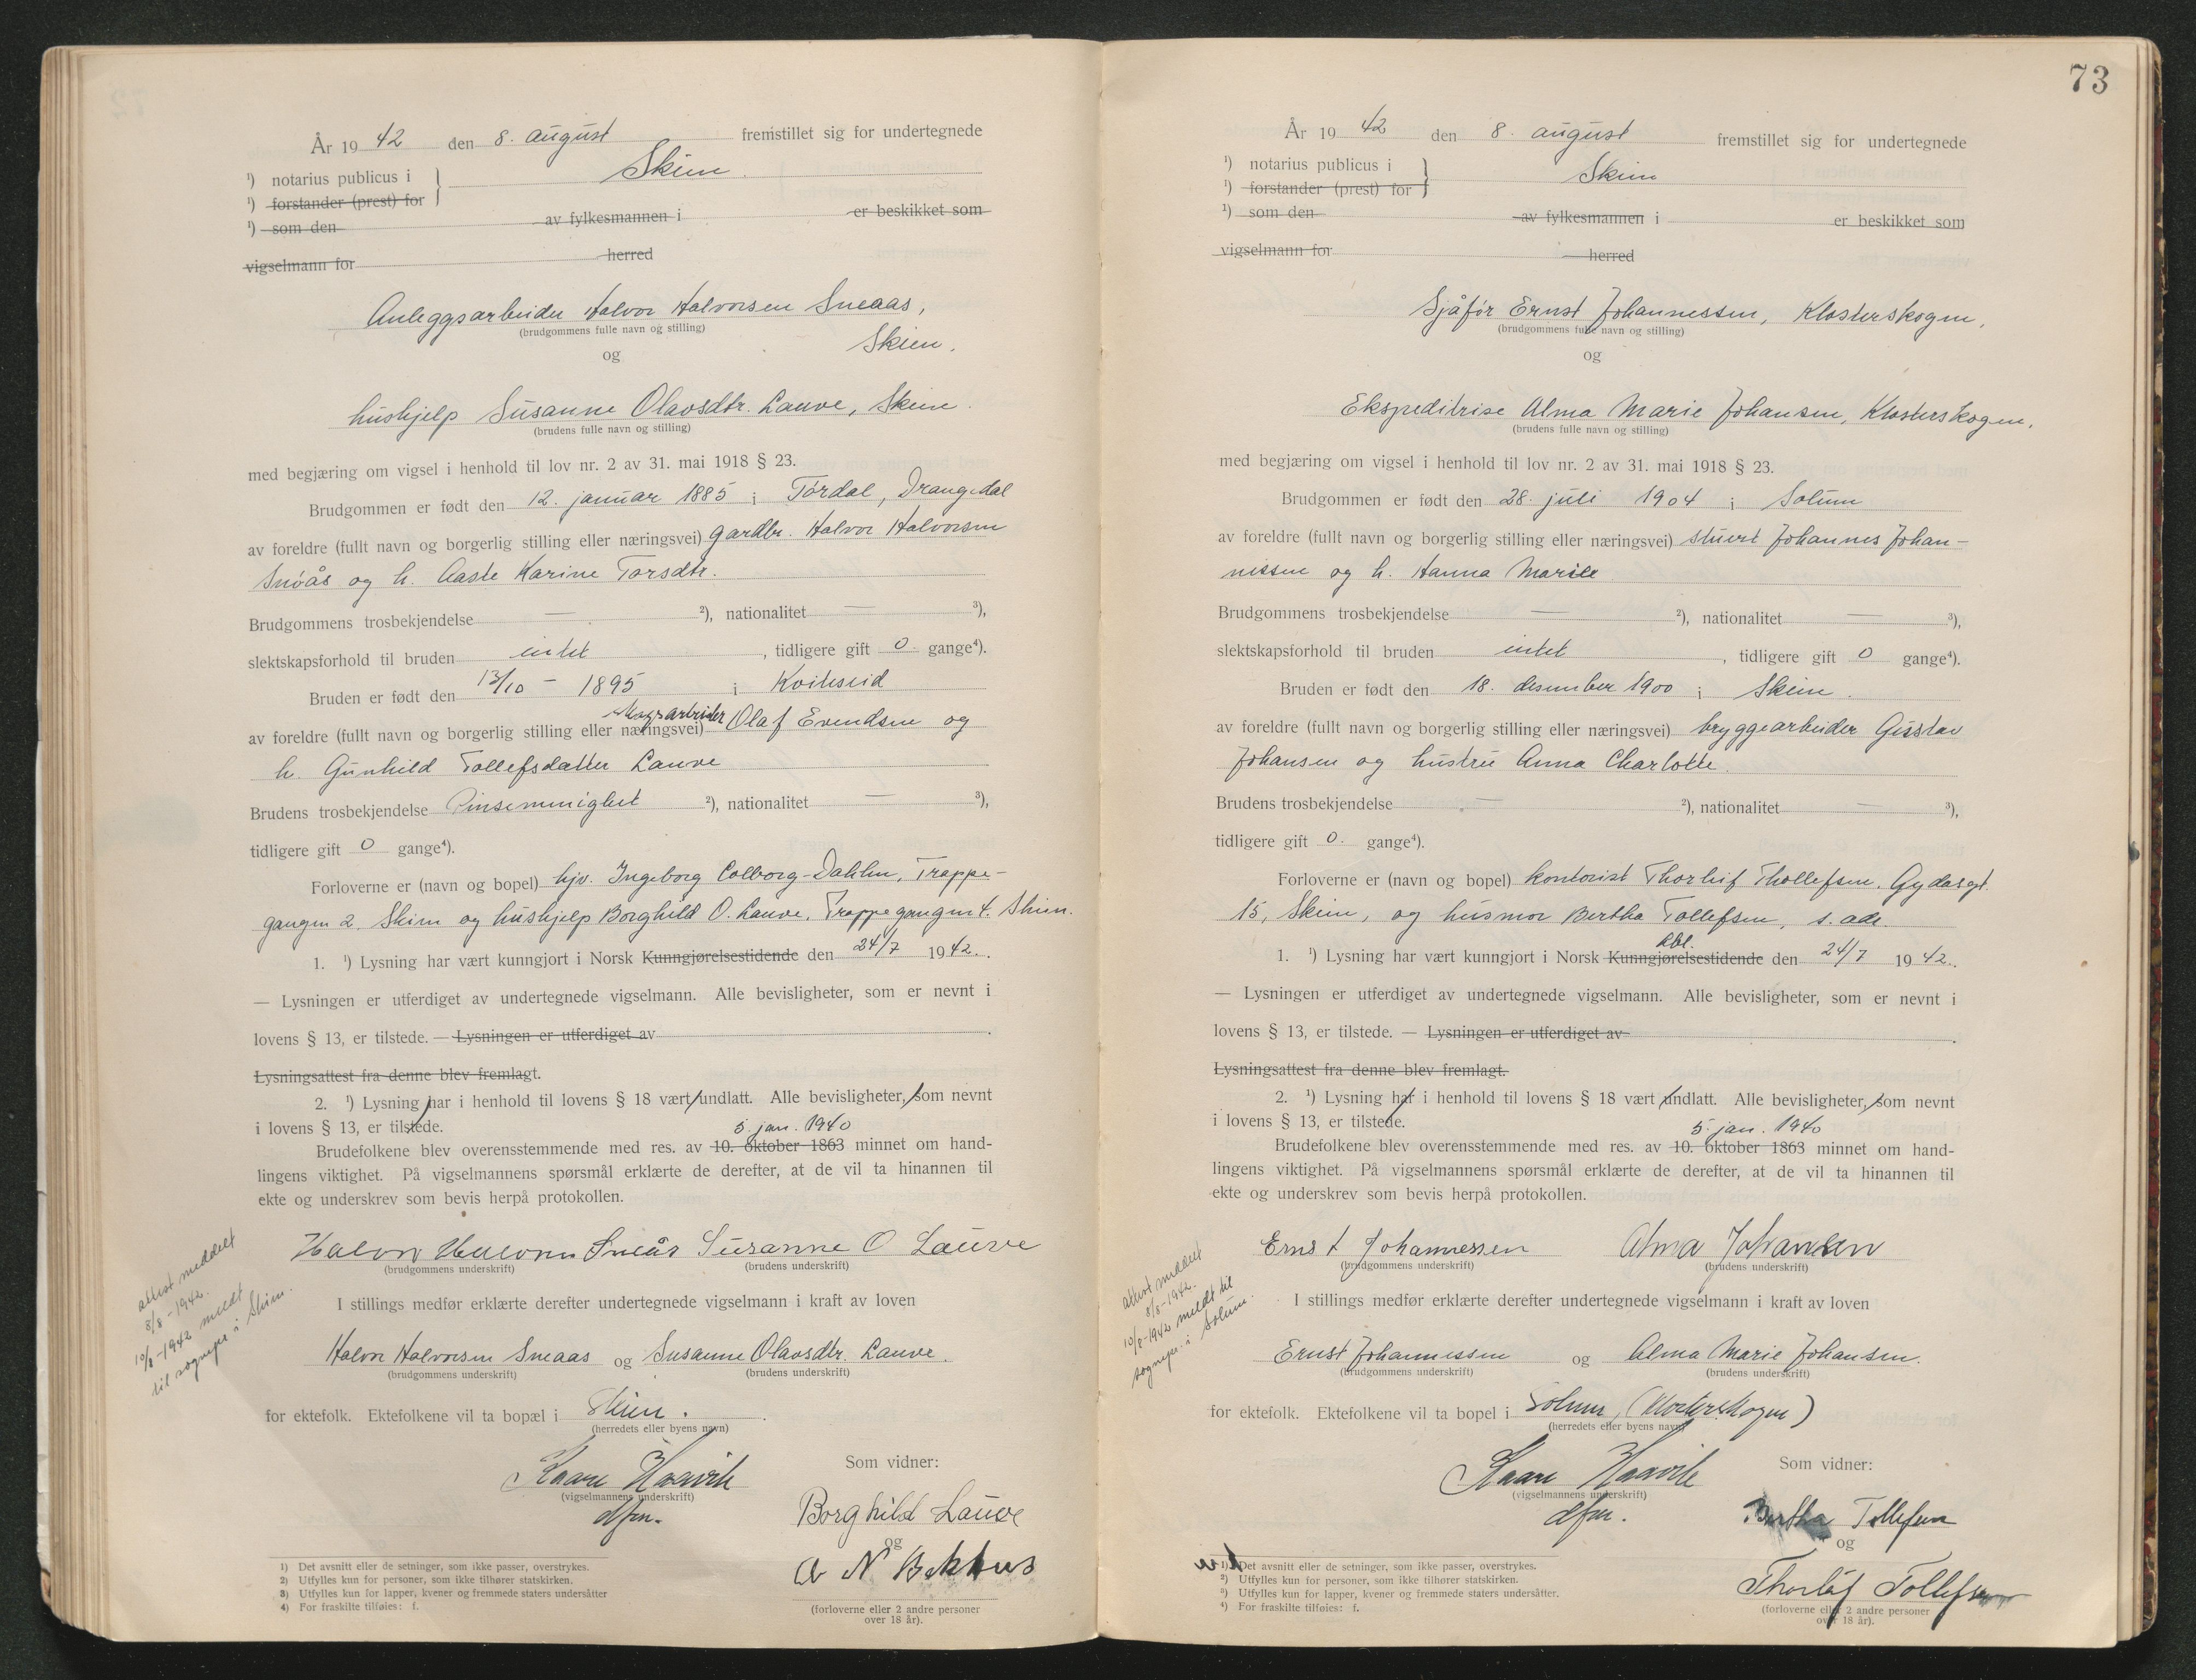 År 19 42 den 8. august fremstillet sig for undertegnede
¹) notarius publicus i } Skien.
¹) forstander (prest) for
¹) som den av fylkesmannen i er beskikket som
vigselmann for herred
Anleggsarbeider Halvor Halvorsen Sneaas,
(brudgommens fulle navn og stilling)
og Skien.
hushjelp Susanne Olavsdtr. Lauve, Skien.
(brudens fulle navn og stilling)
med begjæring om vigsel i henhold til lov nr. 2 av 31. mai 1918 § 23.
Brudgommen er født den 12. januar 1885 i Tørdal, Drangedal
av foreldre (fullt navn og borgerlig stilling eller næringsvei) gardbr. Halvor Halvorsen
Snøås og h. Aaste Karine Tarsdtr.
Brudgommens trosbekjendelse — ²), nationalitet — ³),
slektskapsforhold til bruden intet, tidligere gift 0 gange⁴).
Bruden er født den 13/10 - 1895 i Kviteseid
av foreldre (fullt navn og borgerlig stilling eller næringsvei) skogsarbeider Olaf Evendsen og
h. Gunhild Tollefsdatter Lauve
Brudens trosbekjendelse Pinsemenighet ²), nationalitet — ³),
tidligere gift 0 gange⁴).
Forloverne er (navn og bopel) hjv. Ingeborg Colborg-Dahlen, Trappe-
gangen 2, Skien og hushjelp Borghild O. Lauve, Trappegangen 4. Skien.
1. ¹) Lysning har vært kunngjort i Norsk Kunngjørelsestidende den 24/7 1942.
— Lysningen er utferdiget av undertegnede vigselmann. Alle bevisligheter, som er nevnt i
lovens § 13, er tilstede. — Lysningen er utferdiget av
Lysningsattest fra denne blev fremlagt.
2. ¹) Lysning har i henhold til lovens § 18 vært undlatt. Alle bevisligheter, som nevnt
i lovens § 13, er tilstede. 5. jan. 1940
Brudefolkene blev overensstemmende med res. av 10. oktober 1863 minnet om hand-
lingens viktighet. På vigselmannens spørsmål erklærte de derefter, at de vil ta hinannen til
ekte og underskrev som bevis herpå protokollen.
Halvor Halvorsen Sneås Susanne O Lauve
(brudgommens underskrift) (brudens underskrift)
attest meddelt
8/8-1942.
10/8-1942 meldt
til sognepr. i Skien.
I stillings medfør erklærte derefter undertegnede vigselmann i kraft av loven
Halvor Halvorsen Sneaas og Susanne Olavsdtr. Lauve.
(brudgommens underskrift) (brudens underskrift)
for ektefolk. Ektefolkene vil ta bopæl i Skien.
(herredets eller byens navn)
Kaare Haavik
(vigselmannens underskrift)
dfm.
Som vidner:
Borghild Lauve
og
(forloverne eller 2 andre personer
over 18 år).
1) Det avsnitt eller de setninger, som ikke passer, overstrykes.
2) Utfylles kun for personer, som ikke tilhører statskirken.
3) Utfylles kun for lapper, kvener og fremmede staters undersåtter
4) For fraskilte tilføies: f.
73
År 19 42 den 8. august fremstillet sig for undertegnede
¹) notarius publicus i } Skien
¹) forstander (prest) for
¹) som den av fylkesmannen i er beskikket som
vigselmann for herred
Sjåfør Ernst Johannessen, Klosterskogen,
(brudgommens fulle navn og stilling)
og
Ekspeditrise Alma Marie Johansen, Klosterskogen.
(brudens fulle navn og stilling)
med begjæring om vigsel i henhold til lov nr. 2 av 31. mai 1918 § 23.
Brudgommen er født den 28. juli 1904 i Solum
av foreldre (fullt navn og borgerlig stilling eller næringsvei) stuert Johannes Johan-
nessen og h. Hanna Marie
Brudgommens trosbekjendelse — ²), nationalitet — ³),
slektskapsforhold til bruden intet, tidligere gift 0 gange⁴).
Bruden er født den 18. desember 1900 i Skien.
av foreldre (fullt navn og borgerlig stilling eller næringsvei) bryggearbeider Gustav
Johansen og hustru Anna Charlotte.
Brudens trosbekjendelse — ²), nationalitet — ³),
tidligere gift 0. gange⁴).
Forloverne er (navn og bopel) kontorist Thorleif Thollefsen, Gydasgt.
15, Skien, og husmor Bertha Tollefsen, s. adr.
1. ¹) Lysning har vært kunngjort i Norsk Kunngjørelsestidende den 24/7 1942.
— Lysningen er utferdiget av undertegnede vigselmann. Alle bevisligheter, som er nevnt i
lovens § 13, er tilstede. — Lysningen er utferdiget av
Lysningsattest fra denne blev fremlagt.
2. ¹) Lysning har i henhold til lovens § 18 vært undlatt. Alle bevisligheter, som nevnt
i lovens § 13, er tilstede. 5. jan. 1940
Brudefolkene blev overensstemmende med res. av 10. oktober 1863 minnet om hand-
lingens viktighet. På vigselmannens spørsmål erklærte de derefter, at de vil ta hinannen til
ekte og underskrev som bevis herpå protokollen.
Ernst Johannessen Alma Johansen
(brudgommens underskrift) (brudens underskrift)
attest meddelt
8/8-1942.
10/8-1942 meldt til
sognepr. i Solum.
I stillings medfør erklærte derefter undertegnede vigselmann i kraft av loven
Ernst Johannessen og Alma Marie Johansen.
(brudgommens underskrift) (brudens underskrift)
for ektefolk. Ektefolkene vil ta bopel i Solum, (Klosterskogen)
(herredets eller byens navn)
Kaare Haavik
(vigselmannens underskrift)
dfm.
Som vidner:
Bertha Tollefsen
og
Thorleif Tollefsen
(forloverne eller 2 andre personer
over 18 år).
¹) Det avsnitt eller de setninger, som ikke passer, overstrykes.
²) Utfylles kun for personer, som ikke tilhører statskirken.
³) Utfylles kun for lapper, kvener og fremmede staters undersåtter.
⁴) For fraskilte tilføies: f.